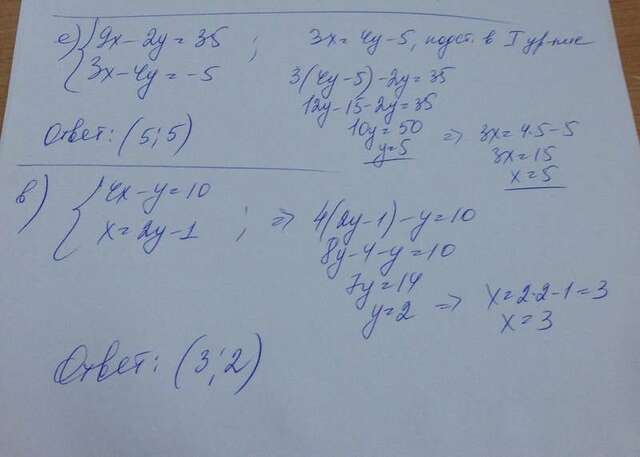 е) { 9x-2y=35 ; 3x=4y-5, подст. в I ур-ние
3x-4y=-5
3(4y-5)-2y=35
12y-15-2y=35
10y=50 => 3x=4·5-5
y=5
3x=15
x=5
Ответ: (5;5)
в) { 4x-y=10
x=2y-1 ; => 4(2y-1)-y=10
8y-4-y=10
7y=14
y=2 => x=2·2-1=3
x=3
Ответ: (3;2)